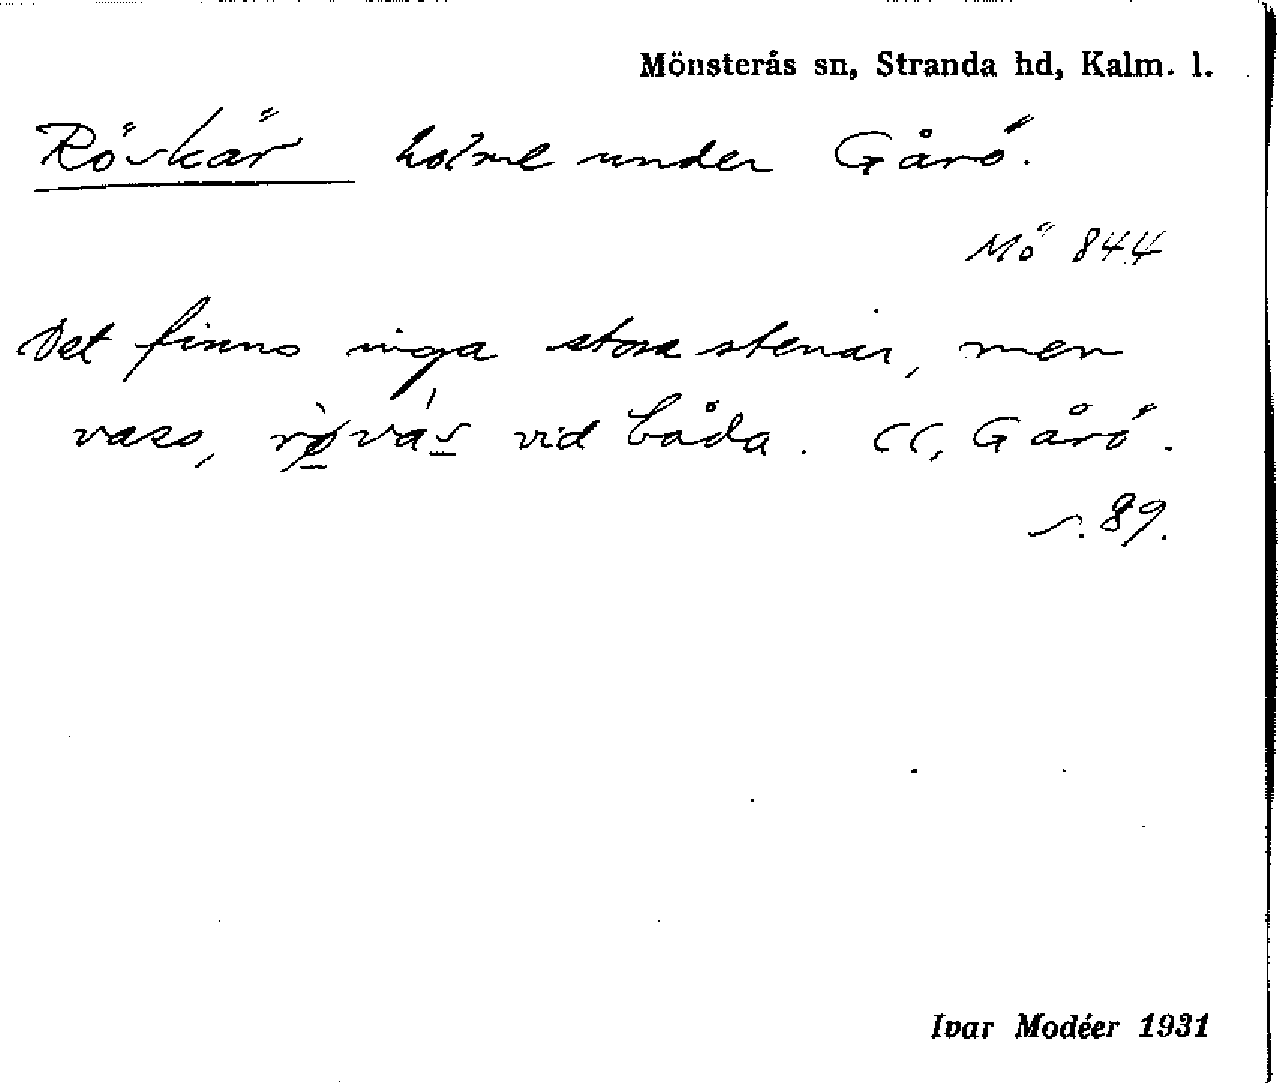 Mönsterås sn, Stranda hd, Kalm. l.
Röskär holme under Gårö.
Mö 844
Det finns inga stora stenar, men
vass, vid båda. CC, Gårö.
s. 89.
Ivar Modéer 1931